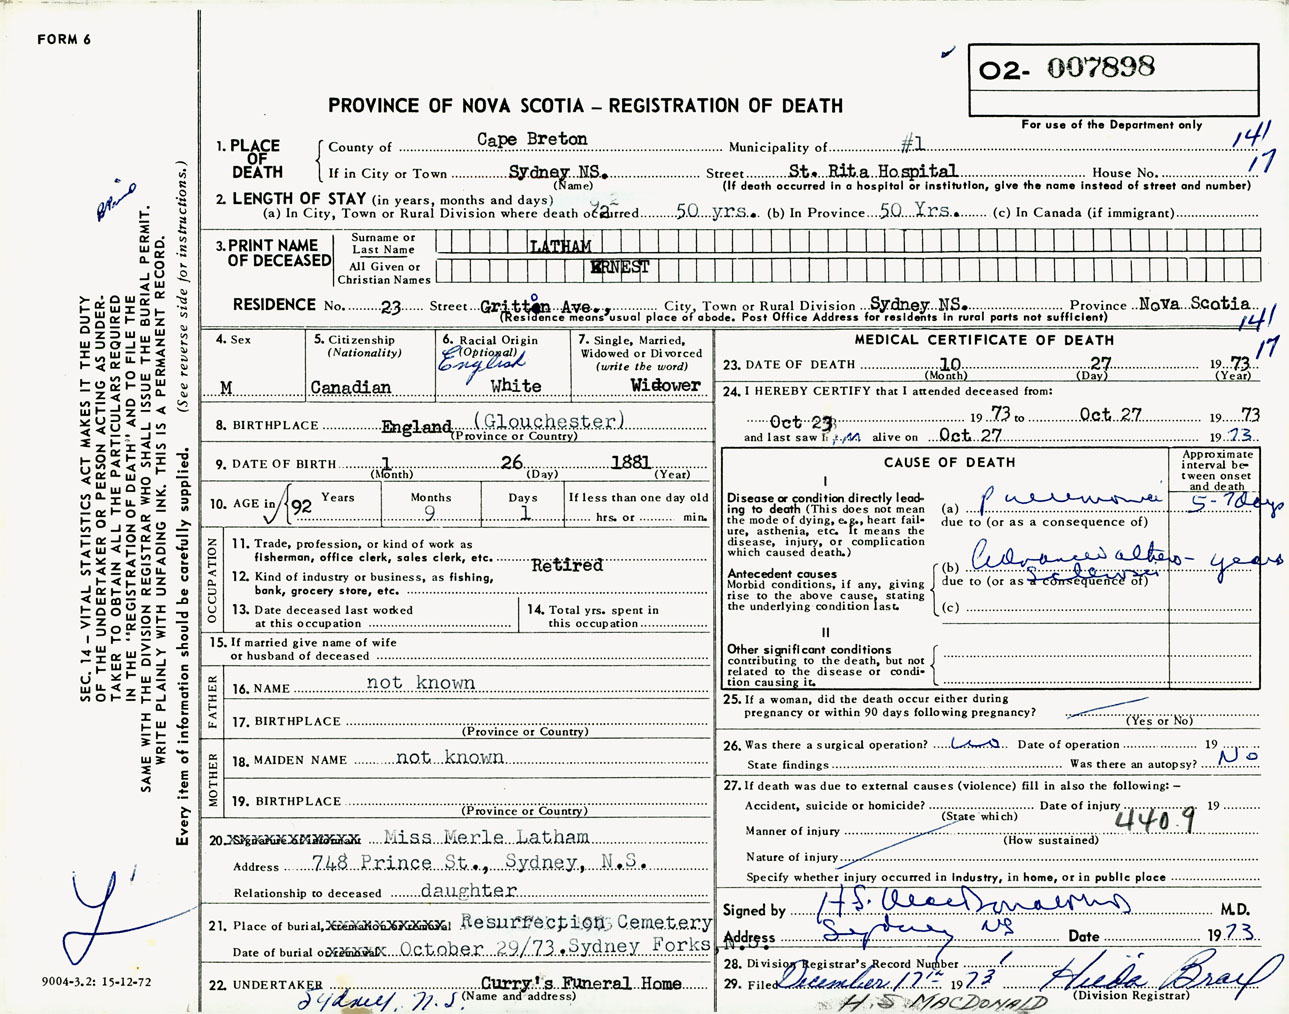 FORM 6
O2- 007898
PROVINCE OF NOVA SCOTIA – REGISTRATION OF DEATH
For use of the Department only
1. PLACE OF DEATH
County of Cape Breton Municipality of #1 141
If in City or Town Sydney NS. Street St. Rita Hospital House No. 17
(Name) (If death occurred in a hospital or institution, give the name instead of street and number)
2. LENGTH OF STAY (in years, months and days)
(a) In City, Town or Rural Division where death occurred 50 yrs. (b) In Province 50 Yrs. (c) In Canada (if immigrant)
3. PRINT NAME OF DECEASED
Surname or Last Name LATHAM
All Given or Christian Names ERNEST
RESIDENCE No. 23 Street Gritton Ave., City, Town or Rural Division Sydney NS. Province Nova Scotia
(Residence means usual place of abode. Post Office Address for residents in rural parts not sufficient) 141
17
4. Sex
M
5. Citizenship
(Nationality)
Canadian
6. Racial Origin
(Optional)
English
White
7. Single, Married,
Widowed or Divorced
(write the word)
Widower
8. BIRTHPLACE England (Glouchester)
(Province or Country)
9. DATE OF BIRTH 1 26 1881
(Month) (Day) (Year)
10. AGE in 92 Years Months 9 Days 1 If less than one day old
hrs. or min.
OCCUPATION
11. Trade, profession, or kind of work as
fisherman, office clerk, sales clerk, etc.
Retired
12. Kind of industry or business, as fishing,
bank, grocery store, etc.
13. Date deceased last worked
at this occupation
14. Total yrs. spent in
this occupation
15. If married give name of wife
or husband of deceased
FATHER
16. NAME not known
17. BIRTHPLACE
(Province or Country)
MOTHER
18. MAIDEN NAME not known
19. BIRTHPLACE
(Province or Country)
20. Signature of informant Miss Merle Latham
Address 748 Prince St., Sydney, N.S.
Relationship to deceased daughter
21. Place of burial, cremation or removal Resurrection Cemetery
Date of burial or removal October 29/73. Sydney Forks, N.S.
22. UNDERTAKER Curry's Funeral Home
(Name and address)
Sydney, N.S.
MEDICAL CERTIFICATE OF DEATH
23. DATE OF DEATH 10 27 1973
(Month) (Day) (Year)
24. I HEREBY CERTIFY that I attended deceased from:
Oct 23 1973 to Oct 27 1973
and last saw him alive on Oct 27 1973
CAUSE OF DEATH
Approximate
interval be-
tween onset
and death
I
Disease or condition directly lead-
ing to death (This does not mean
the mode of dying, e.g., heart fail-
ure, asthenia, etc. It means the
disease, injury, or complication
which caused death.)
(a) Pneumonia 5-7 days
due to (or as a consequence of)
Antecedent causes
Morbid conditions, if any, giving
rise to the above cause, stating
the underlying condition last.
(b) Advanced - years
due to (or as a consequence of)
(c)
II
Other significant conditions
contributing to the death, but not
related to the disease or condi-
tion causing it.
25. If a woman, did the death occur either during
pregnancy or within 90 days following pregnancy?
(Yes or No)
26. Was there a surgical operation? no Date of operation 19
State findings Was there an autopsy? No
27. If death was due to external causes (violence) fill in also the following: –
Accident, suicide or homicide? Date of injury 19
(State which)
4409
Manner of injury
(How sustained)
Nature of injury
Specify whether injury occurred in industry, in home, or in public place
Signed by H.S. MacDonald M.D.
Address Sydney NS Date 1973
28. Division Registrar's Record Number
29. Filed December 17th 1973 Hilda Bray
(Division Registrar)
H. S MACDONALD
SEC. 14 – VITAL STATISTICS ACT MAKES IT THE DUTY
OF THE UNDERTAKER OR PERSON ACTING AS UNDER-
TAKER TO OBTAIN ALL THE PARTICULARS REQUIRED
IN THE "REGISTRATION OF DEATH" AND TO FILE THE
SAME WITH THE DIVISION REGISTRAR WHO SHALL ISSUE THE BURIAL PERMIT.
WRITE PLAINLY WITH UNFADING INK. THIS IS A PERMANENT RECORD.
Every item of information should be carefully supplied. (See reverse side for instructions.)
9004-3.2: 15-12-72